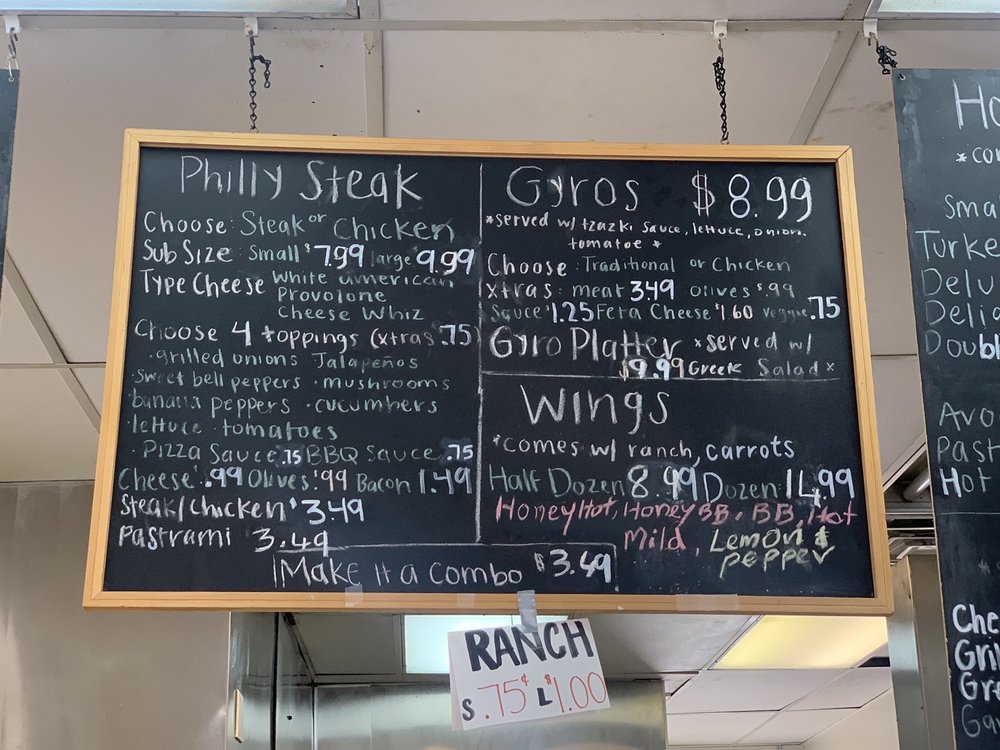 Philly Steak
Choose: Steak or Chicken
Sub Size: Small $7.99 large $9.99
Type Cheese White american
Provolone
Cheese Whiz
Choose 4 toppings (xtras .75)
·grilled onions Jalapeños
·sweet bell peppers ·mushrooms
·banana peppers ·cucumbers
·lettuce ·tomatoes
·Pizza Sauce .75 BBQ Sauce .75
Cheese $.99 Olives $.99 Bacon 1.49
Steak/Chicken $3.49
Pastrami 3.49
Make it a combo $3.49
Gyros $8.99
*served w/ tzazki sauce, lettuce, onion,
tomatoe *
Choose: Traditional or Chicken
xtras: meat 3.49 Olives $.99
Sauce $1.25 Feta Cheese $1.60 Veggie .75
Gyro Platter *served w/
$9.99 Greek Salad *
Wings
*comes w/ ranch, carrots
Half Dozen 8.99 Dozen: 14.99
Honey Hot, Honey BB, BB, Hot
Mild, Lemon &
pepper
RANCH
S .75¢ L $1.00
Ho
*co
Sma
Turke
Delu
Delic
Doubl
Avo
Past
Hot
Che
Gril
Gre